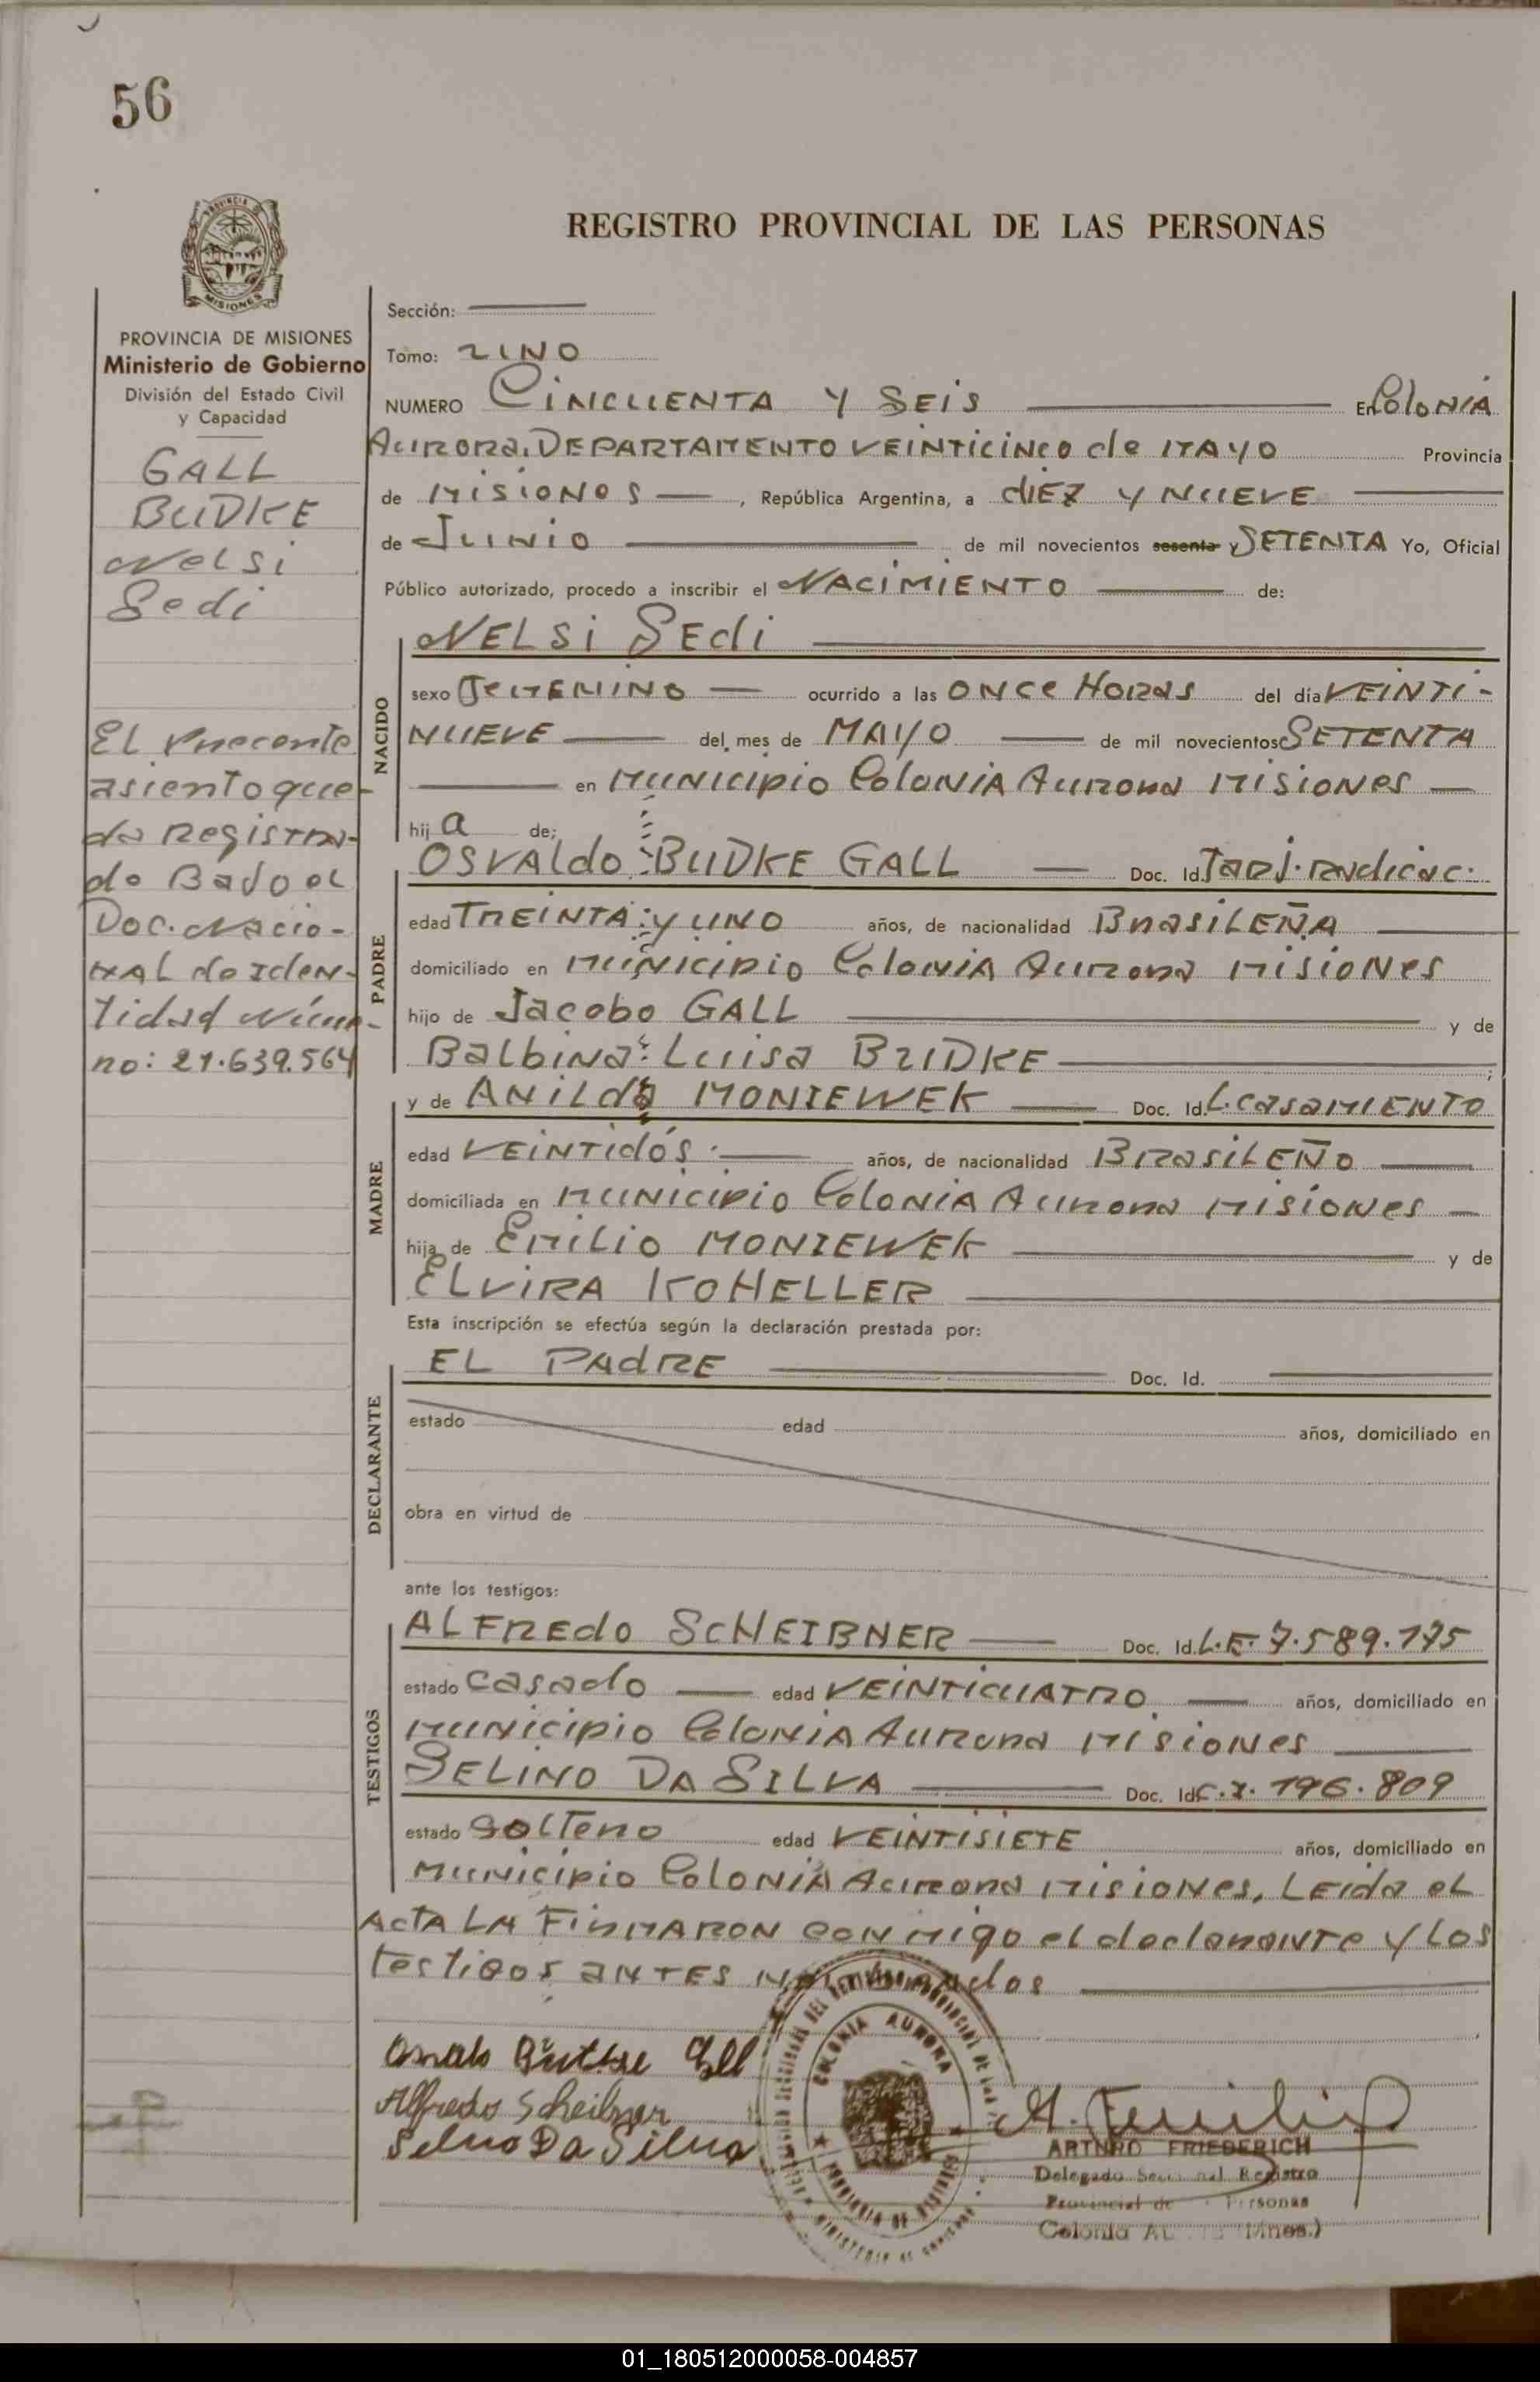 56
PROVINCIA DE MISIONES
Ministerio de Gobierno
División del Estado Civil
y Capacidad
GALL
BUDKE
Nelsi
Sedi
El Presente
asiento que-
da Registra-
do Bajo el
Doc. Nacio-
nal de Iden-
tidad Núme-
ro: 21.639.564
REGISTRO PROVINCIAL DE LAS PERSONAS
Sección:
Tomo: UNO
NUMERO CINCUENTA Y SEIS En Colonia
Aurora. DEPARTAMENTO VEINTICINCO de MAYO Provincia
de Misiones, República Argentina, a diez y NUEVE
de Junio de mil novecientos sesenta y SETENTA Yo, Oficial
Público autorizado, procedo a inscribir el NACIMIENTO de:
NELSI SEdi
NACIDO
sexo FEMENINO ocurrido a las ONCE HORAS del día VEINTI-
NUEVE del mes de MAYO de mil novecientos SETENTA
en Municipio Colonia Aurora Misiones
hij a de;
PADRE
OSVALdo BUDKE GALL Doc. Id. Tarj. radicac.
edad TREINTA y UNO años, de nacionalidad BRASILEÑA
domiciliado en Municipio Colonia Aurora Misiones
hijo de Jacobo GALL y de
Balbina Luisa BUDKE ;
MADRE
y de ANILDA MONIEWEK Doc. Id. L. CASAMIENTO
edad VEINTIdós años, de nacionalidad BRASILEÑO
domiciliada en Municipio Colonia Aurora Misiones
hija de Emilio MONIEWEK y de
ELVIRA KOHELLER
Esta inscripción se efectúa según la declaración prestada por:
DECLARANTE
EL PAdRE Doc. Id.
estado edad años, domiciliado en
obra en virtud de
ante los testigos:
TESTIGOS
ALFREdo SCHEIBNER Doc. Id. L.E. 7.589.175
estado casado edad VEINTICUATRO años, domiciliado en
Municipio Colonia Aurora Misiones
SELINO DA SILVA Doc. Id. C.I. 196.809
estado solTero edad VEINTISIETE años, domiciliado en
Municipio Colonia Aurora Misiones, Leida el
ACTA LA FIRMARON CON migo el declarante y Los
testigos ANTES
COLONIA AURORA
Alfredo Scheibner
Selino Da Silva
ARTURO FRIEDERICH
Delegado Registro
Provincial de Personas
Colonia (Mnes.)
01_180512000058-004857